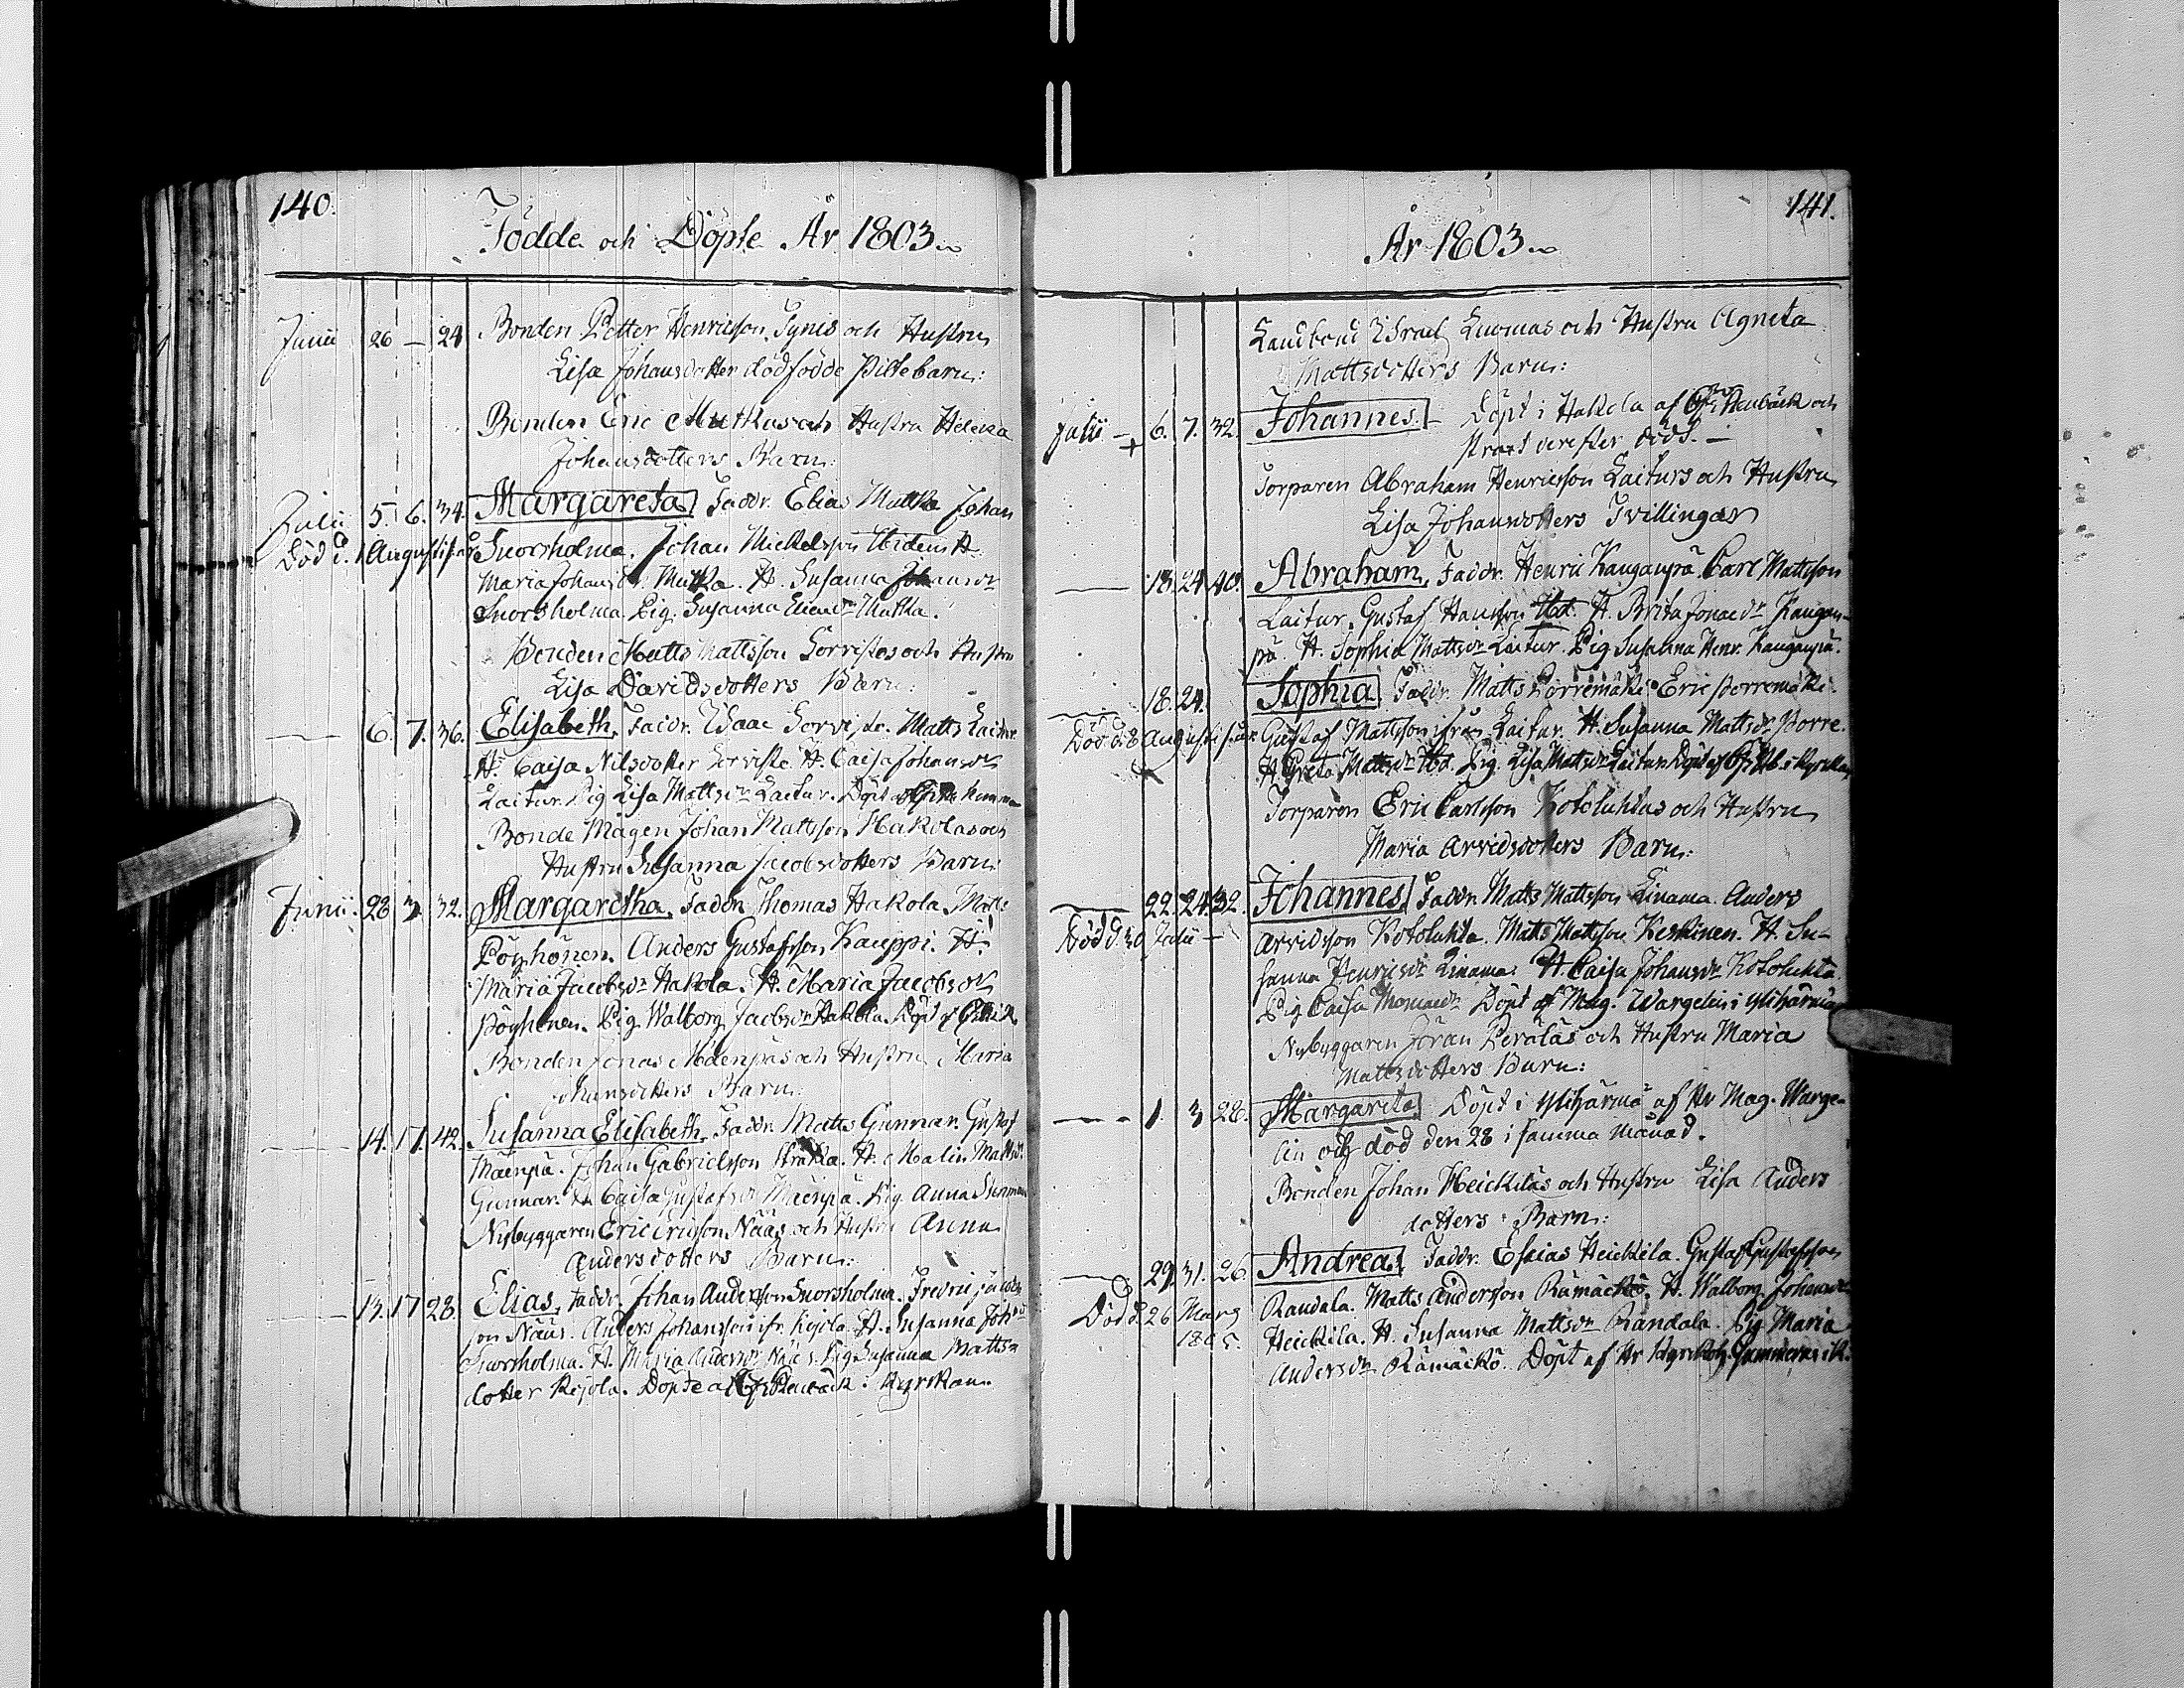 140.
Födde och Döpte År 1803.
Junii 26 — 24 Bonden Petter Henricsson Tynis och Hustru
Lisa Johansdotter dödfödde Piltebarn:
Bonden Eric Mutkas och Hustru Helena
Johansdotters Barn:
Julii 5. 6. 34. Margareta Faddr. Elias Mutka Johan
Död d. 1 Augusti s. år Snorsholma. Johan Mickelsson H.
Maria Johansdr. Mutka. H. Susanna Johansdr
Snorsholma. Pig. Susanna Eliædr Mutka.
Bonden Matts Mattsson Sorvistos och Hustru
Lisa Davidsdotters Barn:
— 6. 7. 36. Elisabeth, Faddr. Isaac Sorvisto. Matts Laitur.
H. Caisa Nilsdotter Sorvisto H. Caisa Johansdr
Laitur. Pig Lisa Mattsdr Laitur. Döpt
Bonde Mågen Johan Mattsson Hakolas och
Hustru Susanna Jacobsdotters Barn:
Junii. 28 3 32. Margaretha. Faddr. Thomas Hakola Matts
Pöyhönen. Anders Gustafsson Kauppi. H.
Maria Jacobsdr Hakola. H. Maria Jacobsdr
Pöyhönen. Pig. Walborg Jacobsdr Hakola. Döpt af
Bonden Jonas Mäenpäs och Hustru Maria
Johansdotters Barn:
— 14. 17. 42. Susanna Elisabeth, Faddr. Matts Gunnar. Gustaf
Mäenpä. Johan Gabrielsson Straka. H. Malin Mattsdr.
Gunnar. H. Caisa Gustafsdr Mäenpä. Pig Anna
Nybyggaren Eric Ericsson Nääs och Hustru Anna
Andersdotters Barn:
— 13. 17 28. Elias, Faddr. Johan Andersson Snorsholma. Fredric Jacobs
son Nääs. Anders Johansson ifr. Kejola. H. Susanna Johsdr
Snorsholma. H. Maria Andersdr Nääs. Pig Susanna Matts
dotter Kejola. Döpte af Renbäck i Kyrkan.
141.
År 1803.
Landbond Israel Luomas och Hustru Agneta
Mattsdotters Barn:
Julii — 6. 7. 32. Johannes. Döpt i Hakola af Renbäck och
straxt derefter död. —
Torparen Abraham Henricsson Laiturs och Hustru
Lisa Johansdotters Tvillingar
— 18. 24. 40. Abraham, Faddr. Henric Kanganpä. Carl Mattsson
Laitur. Gustaf Hansson Ibd. H. Brita Jonaedr Kangan-
pä. H. Sophia Mattsdr Laitur. Pig Susanna Henr. Kanganpä.
— 18. 24. Sophia Faddr. Matts Porremäki. Eric Porremäki.
Död d. 8 Augusti s. år. Gustaf Mattsson ifrån Laitur. H. Susanna Mattsdr Porre.
H. Greta Mattsdr Ibd. Pig. Lisa Mattsdr Laitur. Döpt af i Kyrkan
Torparen Eric Carlsson Kotoluhtas och Hustru
Maria Arvidsdotters Barn:
— 22. 24. 32. Johannes. Faddr. Matts Mattsson Linama. Anders
Död d. 30 Julii — Arvidsson Kotoluhta. Matts Mattsson Keskinen. H. Su-
sanna Henricsdr Linama. H. Caisa Johansdr Kotoluhta.
Pig Caisa Thomaedr Döpt af Mag. Wargelin i Ylihärmä
Nybyggaren Jöran Peräläs och Hustru Maria
Mattsdotters Barn:
— 1. 3 28. Margareta Döpt i Ylihärmä af Hr Mag. Warge-
lin och död den 28 i samma månad.
Bonden Johan Heickiläs och Hustru Lisa Anders
dotters Barn:
— 29. 31. 26. Andreas, Faddr. Esaias Heickila. Gustaf Gustafsson
Död d. 26 Mars Randala. Matts Andersson Rämäckö. H. Walborg Johansdr
1805. Heickila. H. Susanna Mattsdr Randala. Pig Maria
Andersdr Rämäckö. Döpt af Hr